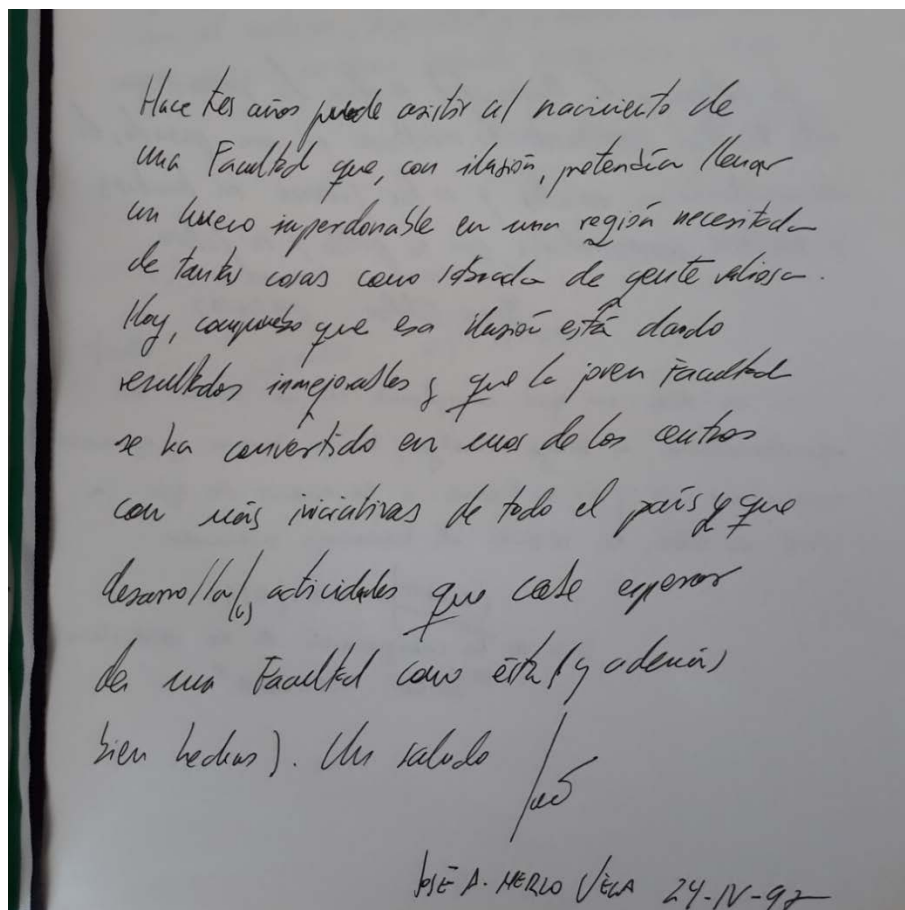 Hace tres años puede asistir al nacimiento de
una Facultad que, con ilusión, pretendía llenar
un hueco imperdonable en una región necesitada
de tantas cosas como sobrada de gente valiosa.
Hoy, compruebo que esa ilusión está dando
resultados inmejorables y que la joven Facultad
se ha convertido en unos de los centros
con más iniciativas de todo el país y que
desarrolla(s) actividades que cabe esperar
de una Facultad como ésta (y además
bien hechas). Un saludo
José
JOSÉ A. MERLO VEGA 24-IV-97